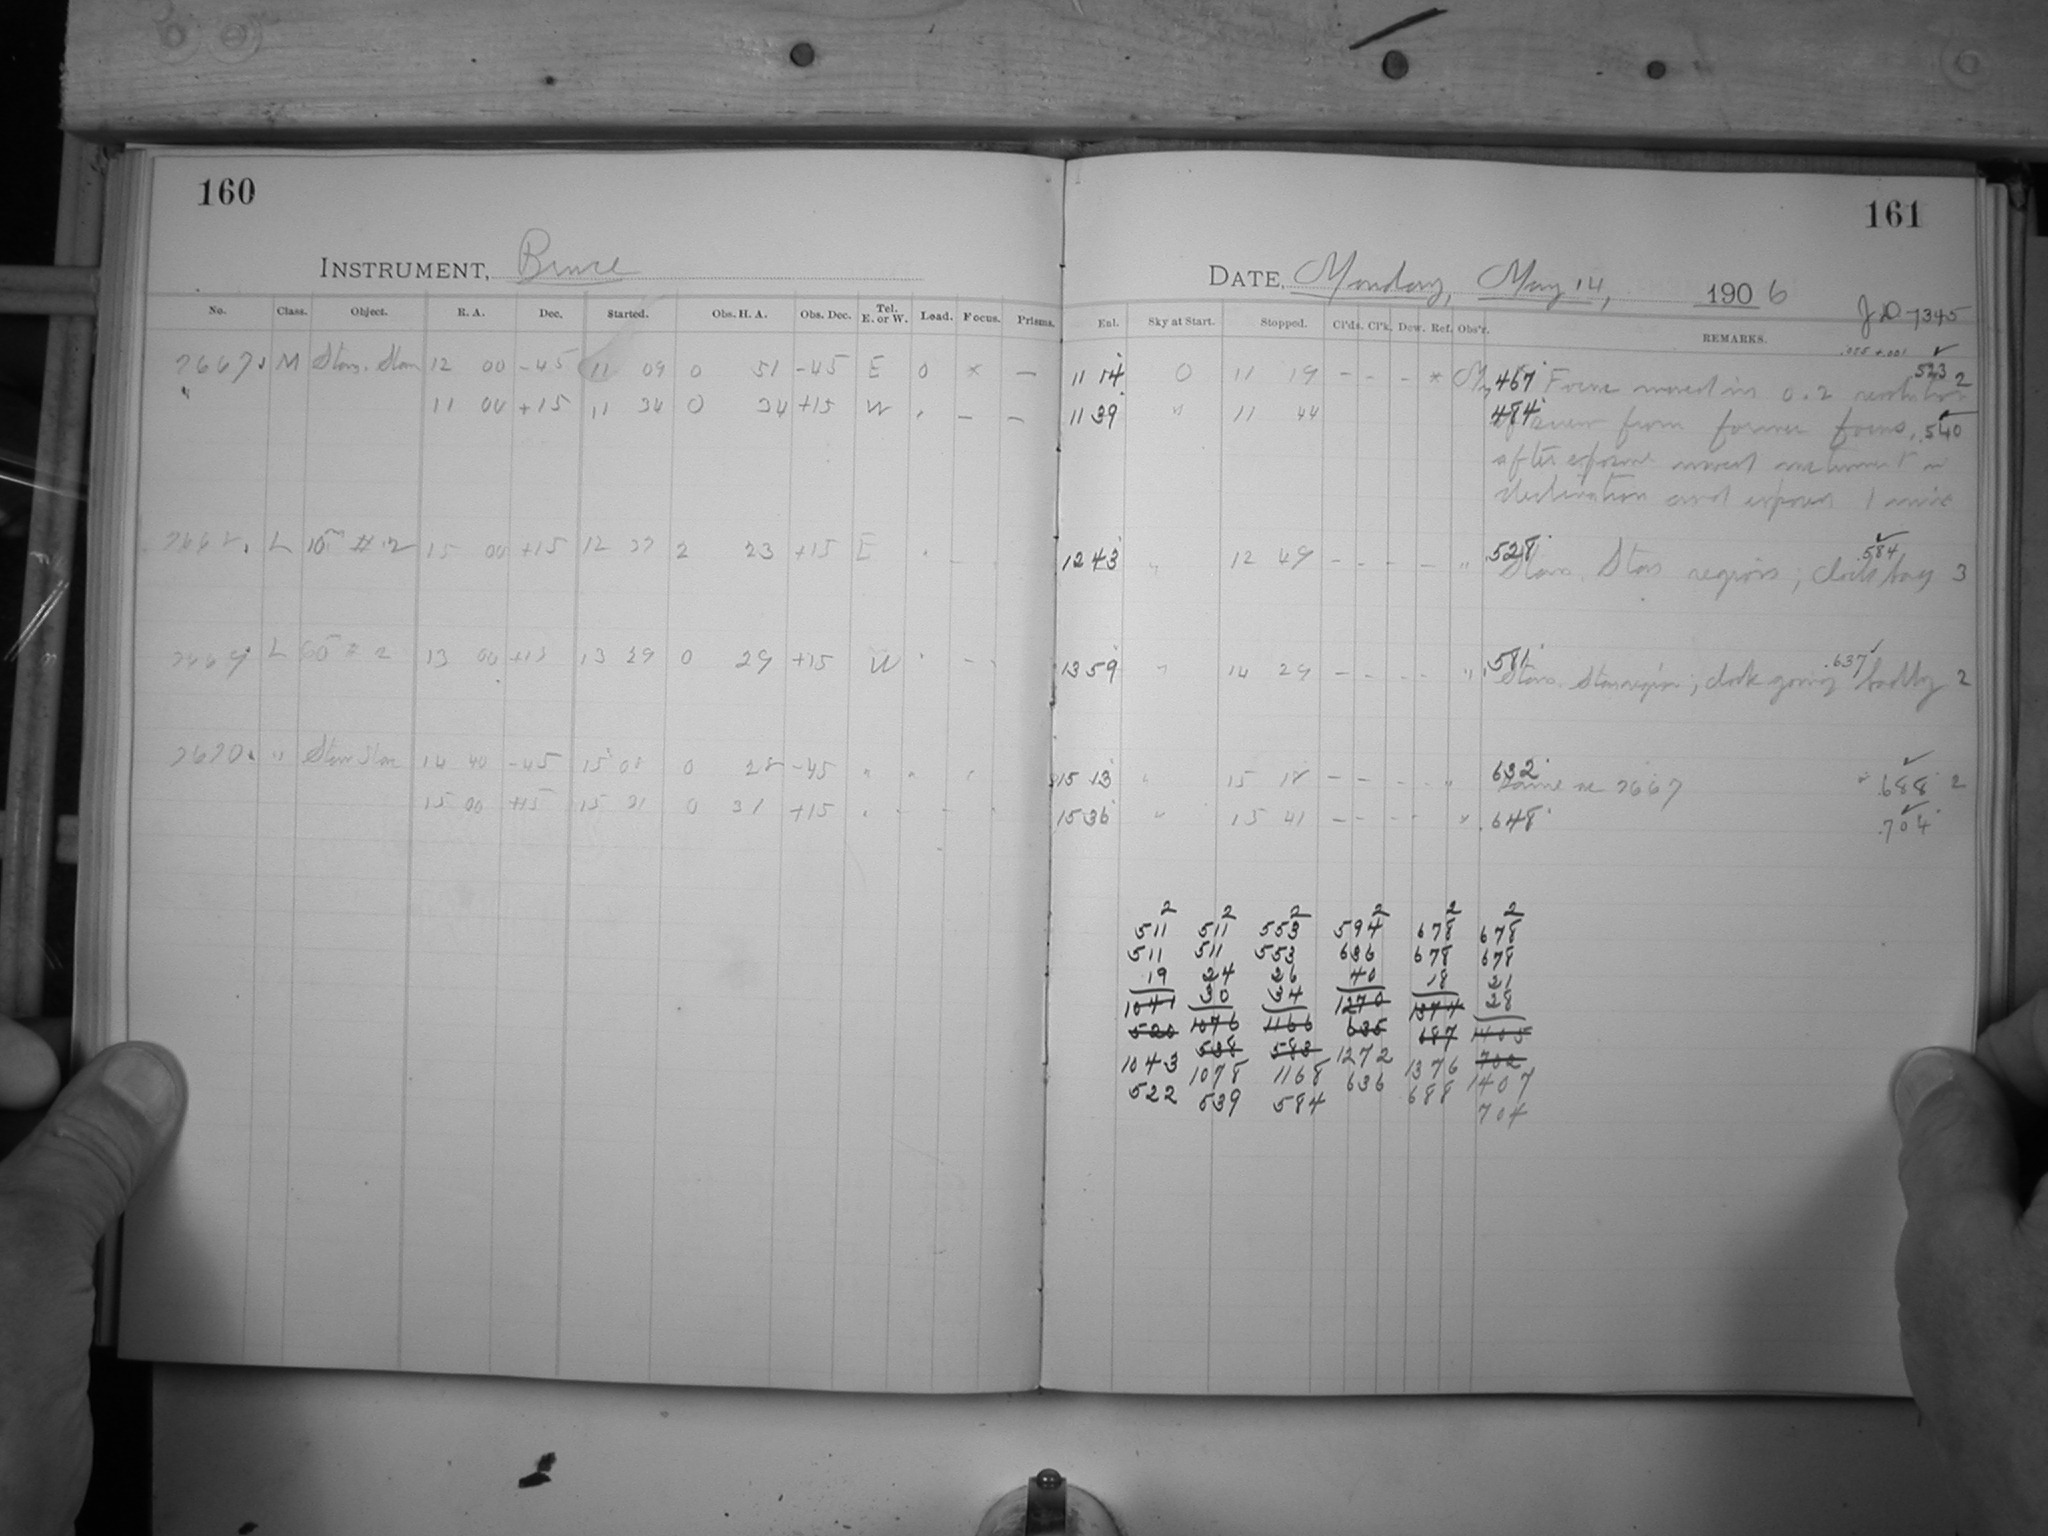 160
161
INSTRUMENT, Bruce
DATE, Monday, May 14, 1906
J D 7345
No. Class. Object. R. A. Dec. Started. Obs. H. A. Obs. Dec. Tel. E. or W. Load. Focus. Prisms.
Exl. Sky at Start. Stopped. Cl'ds. Cl'k. Dew. Ref. Obs'r. REMARKS.
.055 + .001
7667 M Stars. Stars 12 00 -45 11 09 0 51 -45 E 0 * — 11 14 0 11 19 - - - * 467 Focus moved in 0.2 revolution .523 2
" 11 00 +15 11 34 0 34 +15 W — — 11 39 " 11 44 484 of screw from former focus, .540
after exposure moved instrument in
declination and exposed 1 min
7668 L 10m # 2 15 00 +15 12 37 2 23 +15 E 12 43 " 12 49 - - - - " .528 Stars. Stars region, clock .584 3
7669 L 60m # 2 13 00 +15 13 29 0 29 +15 W 13 59 " 14 29 - - - - " .581 Stars. Stars region, clock going badly .637 2
7670 " Stars Stars 14 40 -45 15 08 0 28 -45 " " 15 13 " 15 18 - - - - " 632 Same as 7667 .688 2
15 00 +15 15 31 0 31 +15 15 36 " 15 41 - - - - " .648 .704
2 2 2 2 2 2
511 511 553 594 678 678
511 511 553 636 678 678
19 24 26 40 18 21
1041 30 34 1270 1374 28
520 1076 1166 635 687 1405
1043 538 583 1272 1376 702
522 1078 1168 636 688 1407
539 584 704